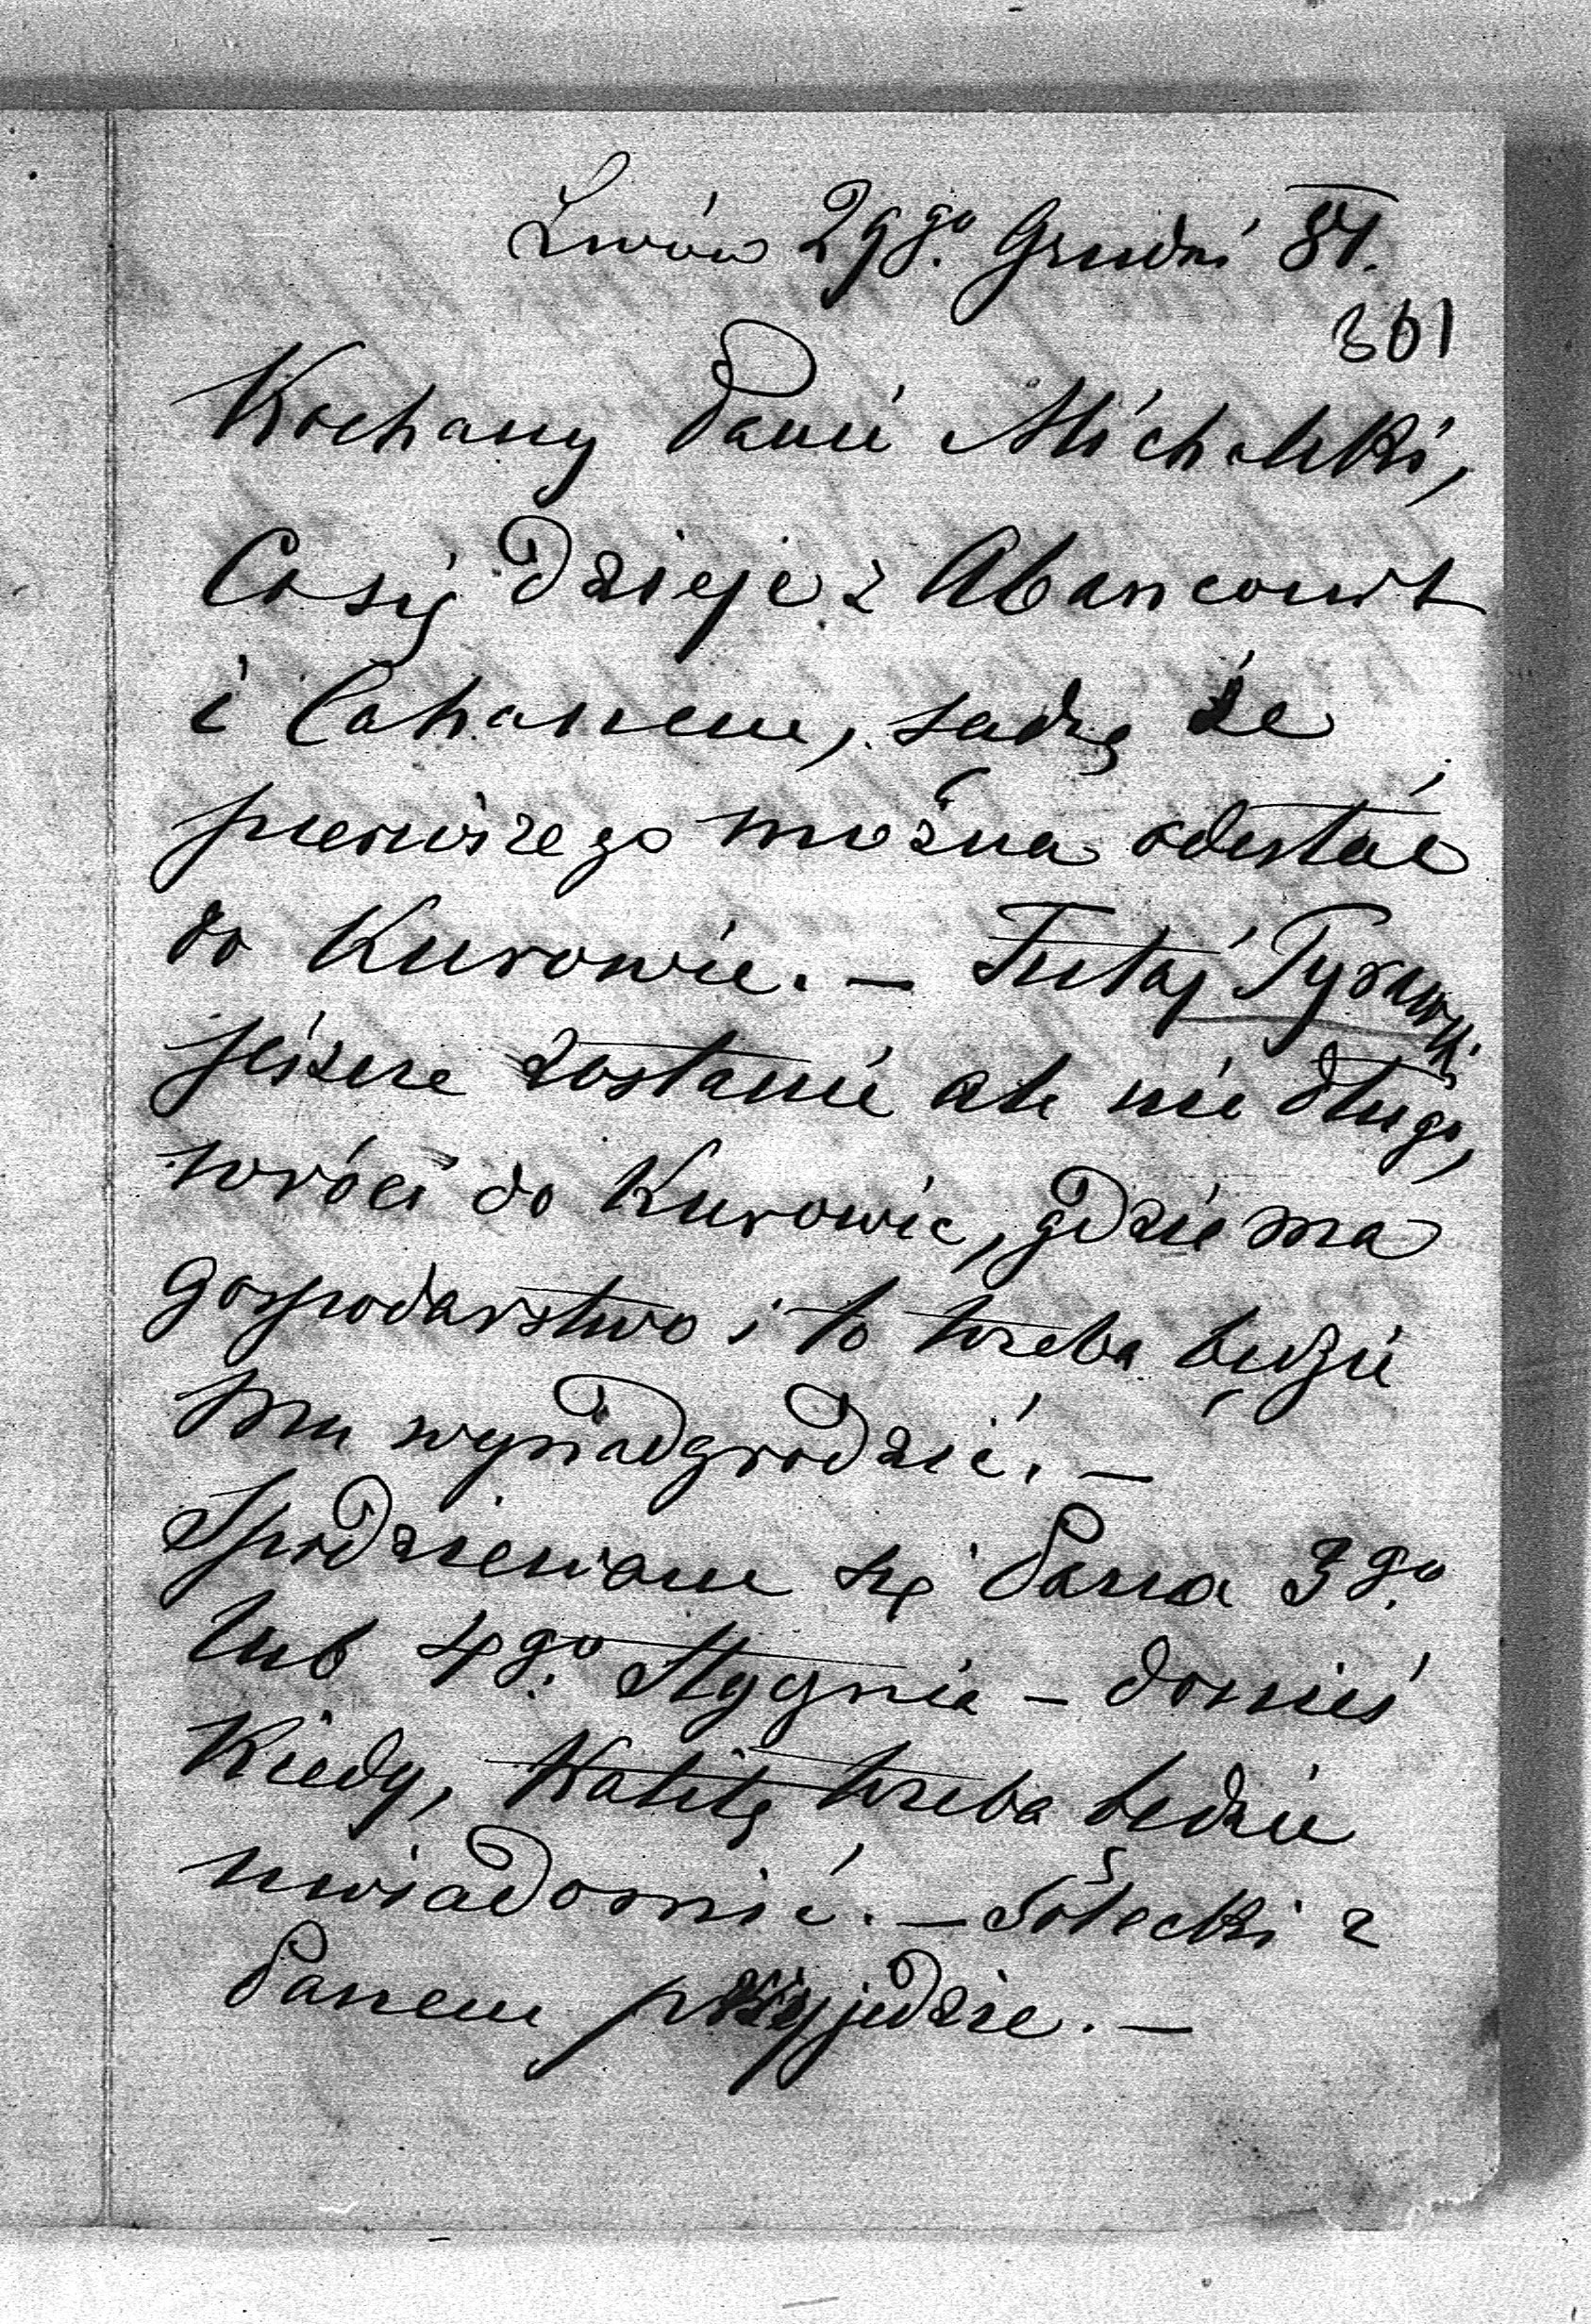 Lwów 29go. Grudni 84.
361
Kochany Panie Michalski,
Co się dzieje z Abancourt
i Cahanem, sadzę że
pierwszego można odesłać
do Kurowic. — Tutaj Tyrawski
jeszcze zostanie ale nie długo,
wróci do Kurowic, gdzie ma
gospodarstwo i to trzeba będzie
mu wynadgrodzić. —
Spodziewam się Pana 3go.
lub 4go. Stycznia — donieś
Kiedy, trzeba bedzie
uwiadomić. — Sołecki z
Panem przyjedzie. —